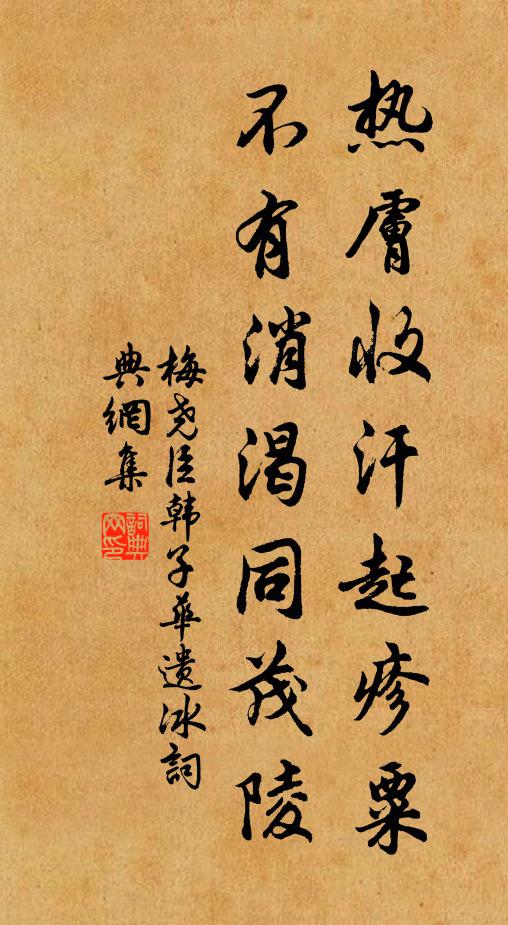 热膚收汗起疹粟
不有消渴同茂陵
梅尧臣韩子華遗冰詞
典網集
詞典网印